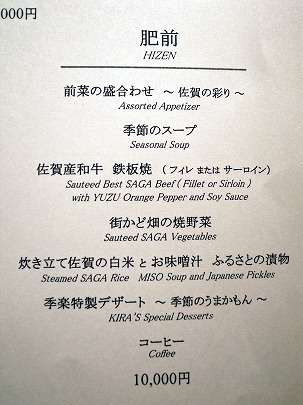 000円
肥前
HIZEN
前菜の盛合わせ ～ 佐賀の彩り ～
Assorted Appetizer
季節のスープ
Seasonal Soup
佐賀産和牛 鉄板焼 （フィレ または サーロイン）
Sauteed Best SAGA Beef ( Fillet or Sirloin )
with YUZU Orange Pepper and Soy Sauce
街かど畑の焼野菜
Sauteed SAGA Vegetables
炊き立て佐賀の白米 と お味噌汁 ふるさとの漬物
Steamed SAGA Rice MISO Soup and Japanese Pickles
季楽特製デザート ～ 季節のうまかもん ～
KIRA'S Special Desserts
コーヒー
Coffee
10,000円